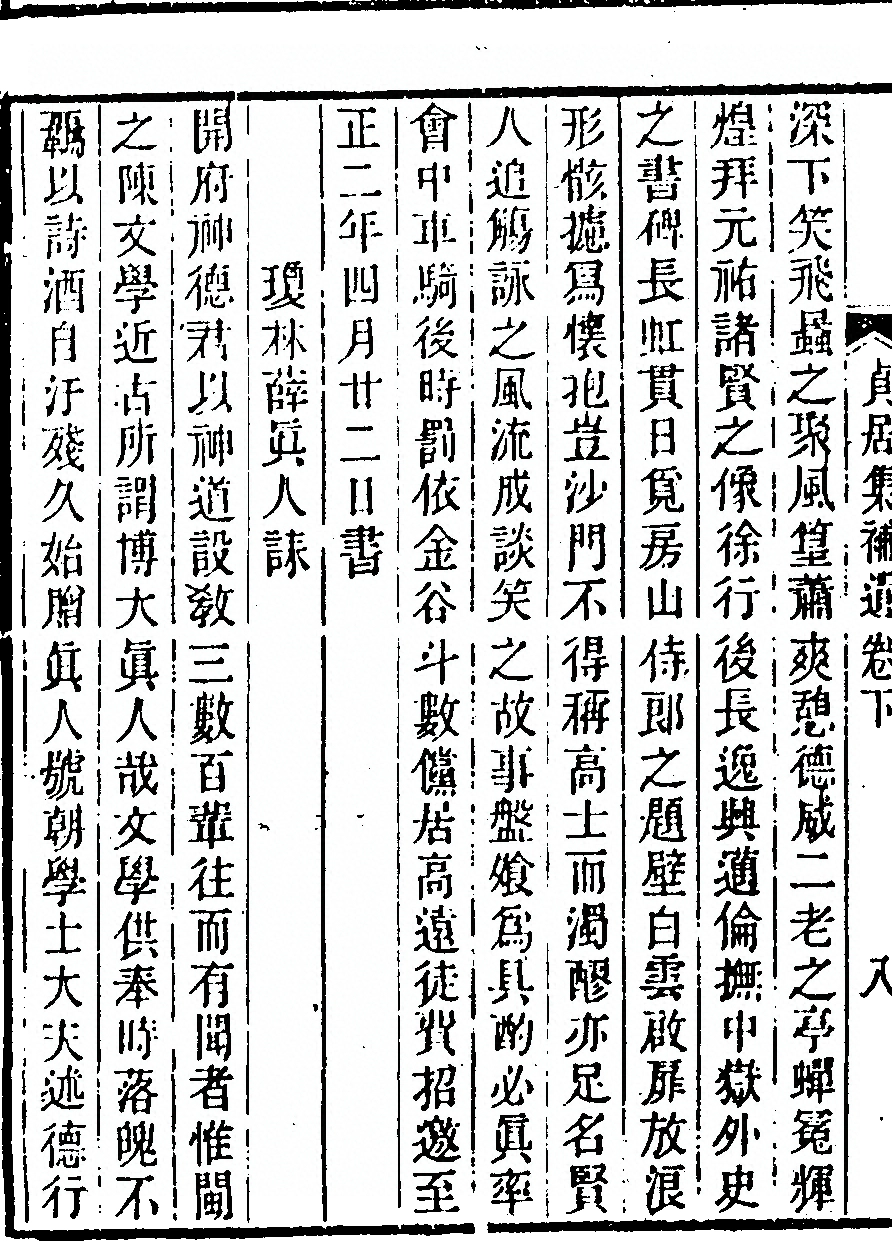 貞居集補遺卷下 八
深下笑飛蟲之聚風篁蕭爽憩德威二老之亭蟬冕輝
煌拜元祐諸賢之像徐行後長逸興邁倫撫中嶽外史
之書碑長虹貫日覓房山侍郎之題壁白雲啟扉放浪
形骸攄寫懷抱豈沙門不得稱高士而濁醪亦足名賢
人追觴詠之風流成談笑之故事盤飧爲具酌必眞率
會中車騎後時罰依金谷斗數儻居高遠徒費招邀至
正二年四月廿二日書
瓊林薛眞人誄
開府神德君以神道設敎三數百輩往而有聞者惟閩
之陳文學近古所謂博大眞人哉文學供奉時落魄不
羈以詩酒自汙殘久始贈眞人號朝學士大夫述德行